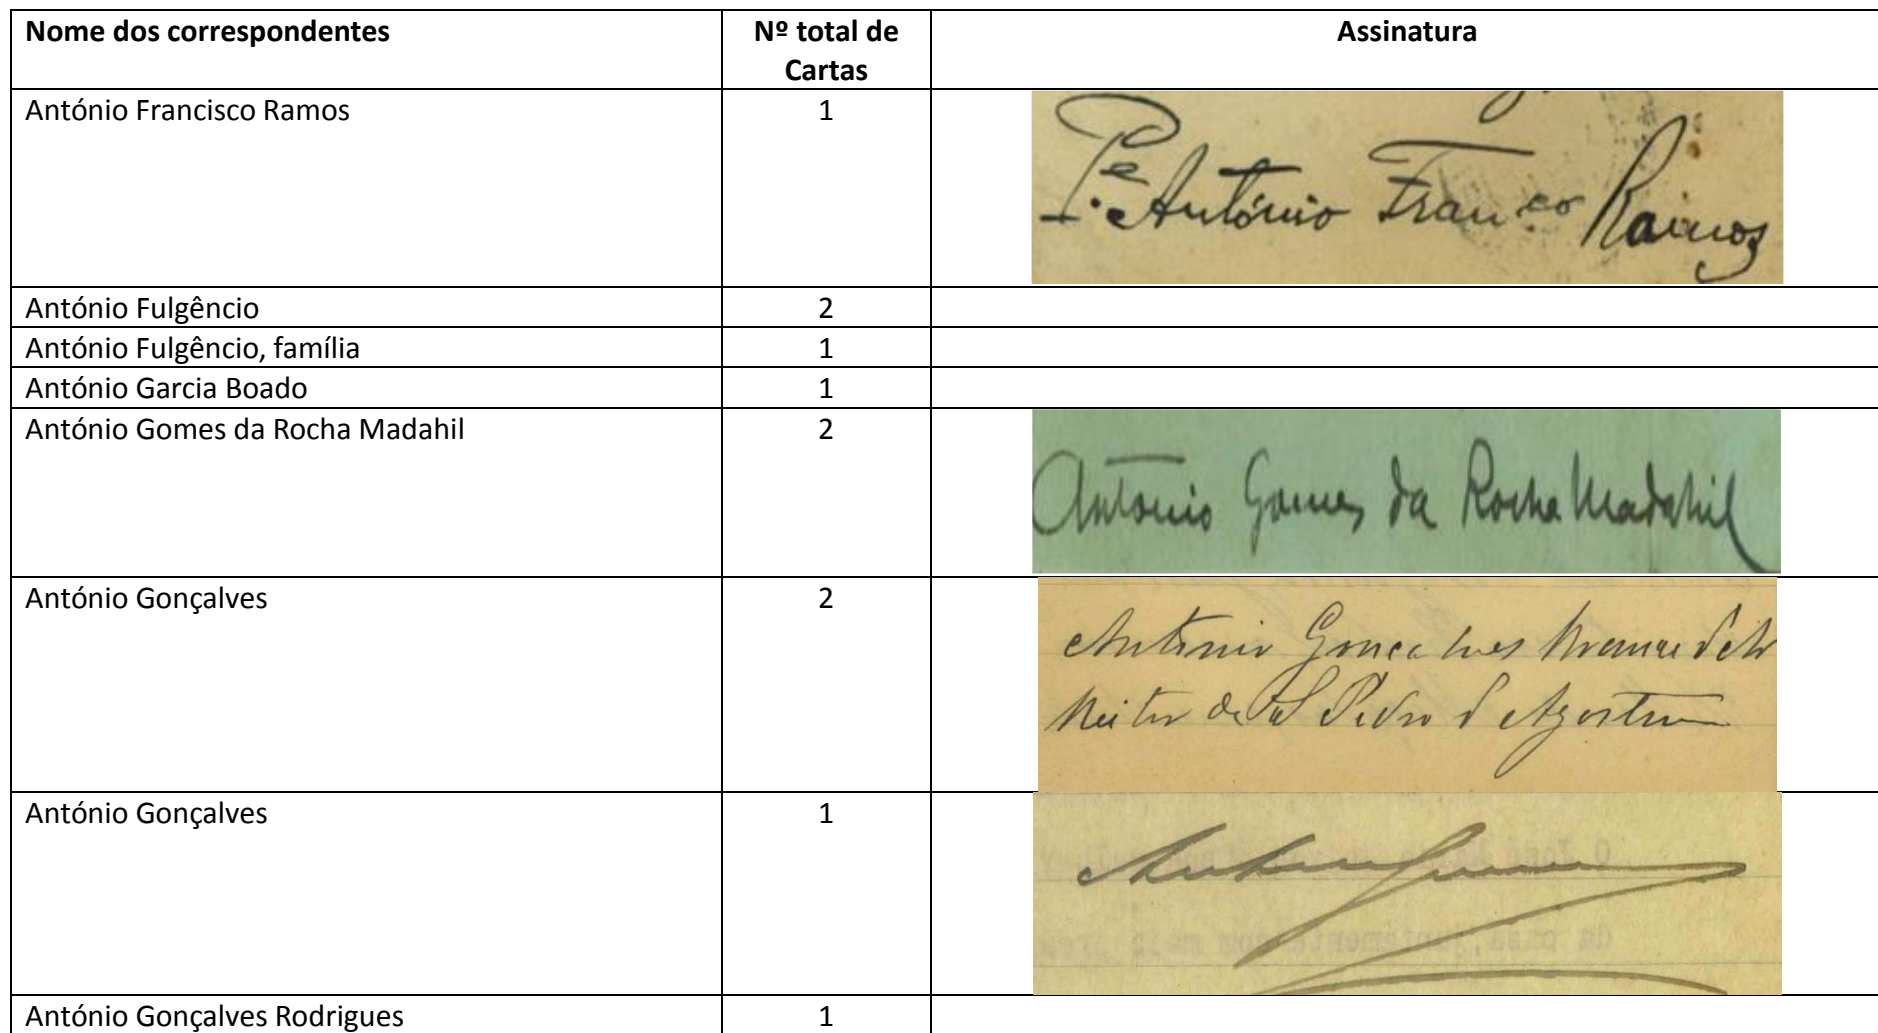 Nome dos correspondentes
Nº total de
Cartas
Assinatura
António Francisco Ramos
1
P.e António Fran.co Ramos
António Fulgêncio
2
António Fulgêncio, família
1
António Garcia Boado
1
António Gomes da Rocha Madahil
2
António Gomes da Rocha Madahil
António Gonçalves
2
Antonio Goncalves
Reitor de S Pedro d'Agostem
António Gonçalves
1
O José
da casa, juntamente com mais
António Gonçalves Rodrigues
1